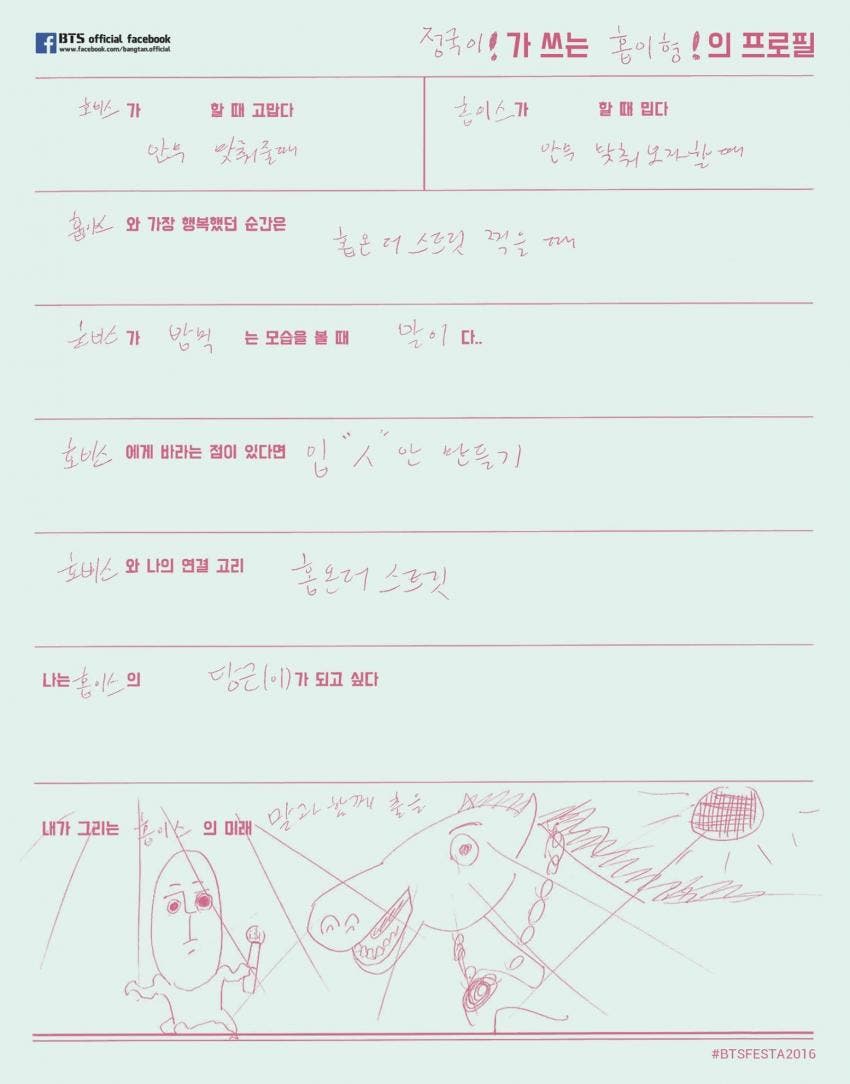 BTS official facebook
www.facebook.com/bangtan.official
정국이! 가 쓰는 홉이형!의 프로필
호비스 가 할 때 고맙다
안무 맞춰줄때
홉이스가 할 때 밉다
안무 맞춰보자할 때
홉이스 와 가장 행복했던 순간은 홉온더 스트릿 찍을 때
호비스 가 밥먹 는 모습을 볼 때 말이 다..
호비스 에게 바라는 점이 있다면 입 "ㅅ" 안 만들기
호비스 와 나의 연결 고리 홉온더 스트릿
나는 홉이스 의 당근(이)가 되고 싶다
내가 그리는 홉이스 의 미래 말과 함께 춤을
#BTSFESTA2016